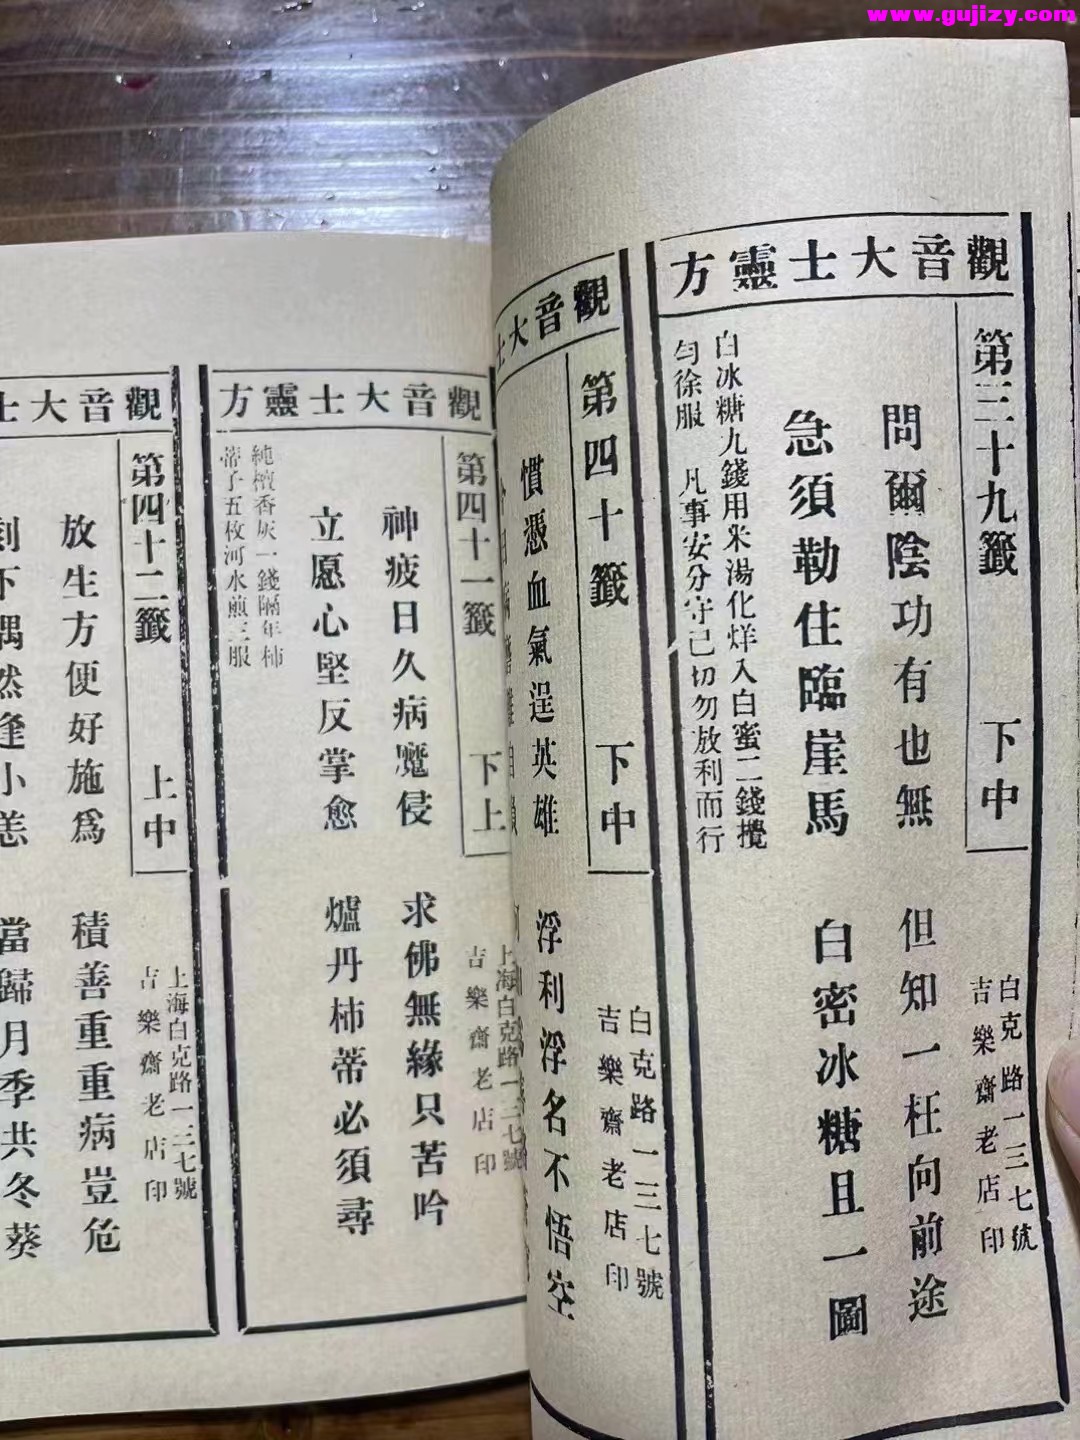 www.gujizy.com
觀音大士靈方
第三十九籤 下中
白克路一三七號
吉樂齋老店印
問爾陰功有也無 但知一枉向前途
急須勒住臨崖馬 白密冰糖且一圖
白冰糖九錢用米湯化烊入白蜜二錢攪
勻徐服 凡事安分守己切勿放利而行
觀音大士
第四十籤 下中
白克路一三七號
吉樂齋老店印
慣憑血氣逞英雄 浮利浮名不悟空
觀音大士靈方
第四十一籤 下上
上海白克路一三七號
吉樂齋老店印
神疲日久病魔侵 求佛無緣只苦吟
立愿心堅反掌愈 爐丹柿蒂必須尋
純檀香灰一錢隔年柿
蒂子五枚河水煎三服
觀音大士
第四十二籤 上中
上海白克路一三七號
吉樂齋老店印
放生方便好施爲 積善重重病豈危
不偶然逢小恙 當歸月季共冬葵